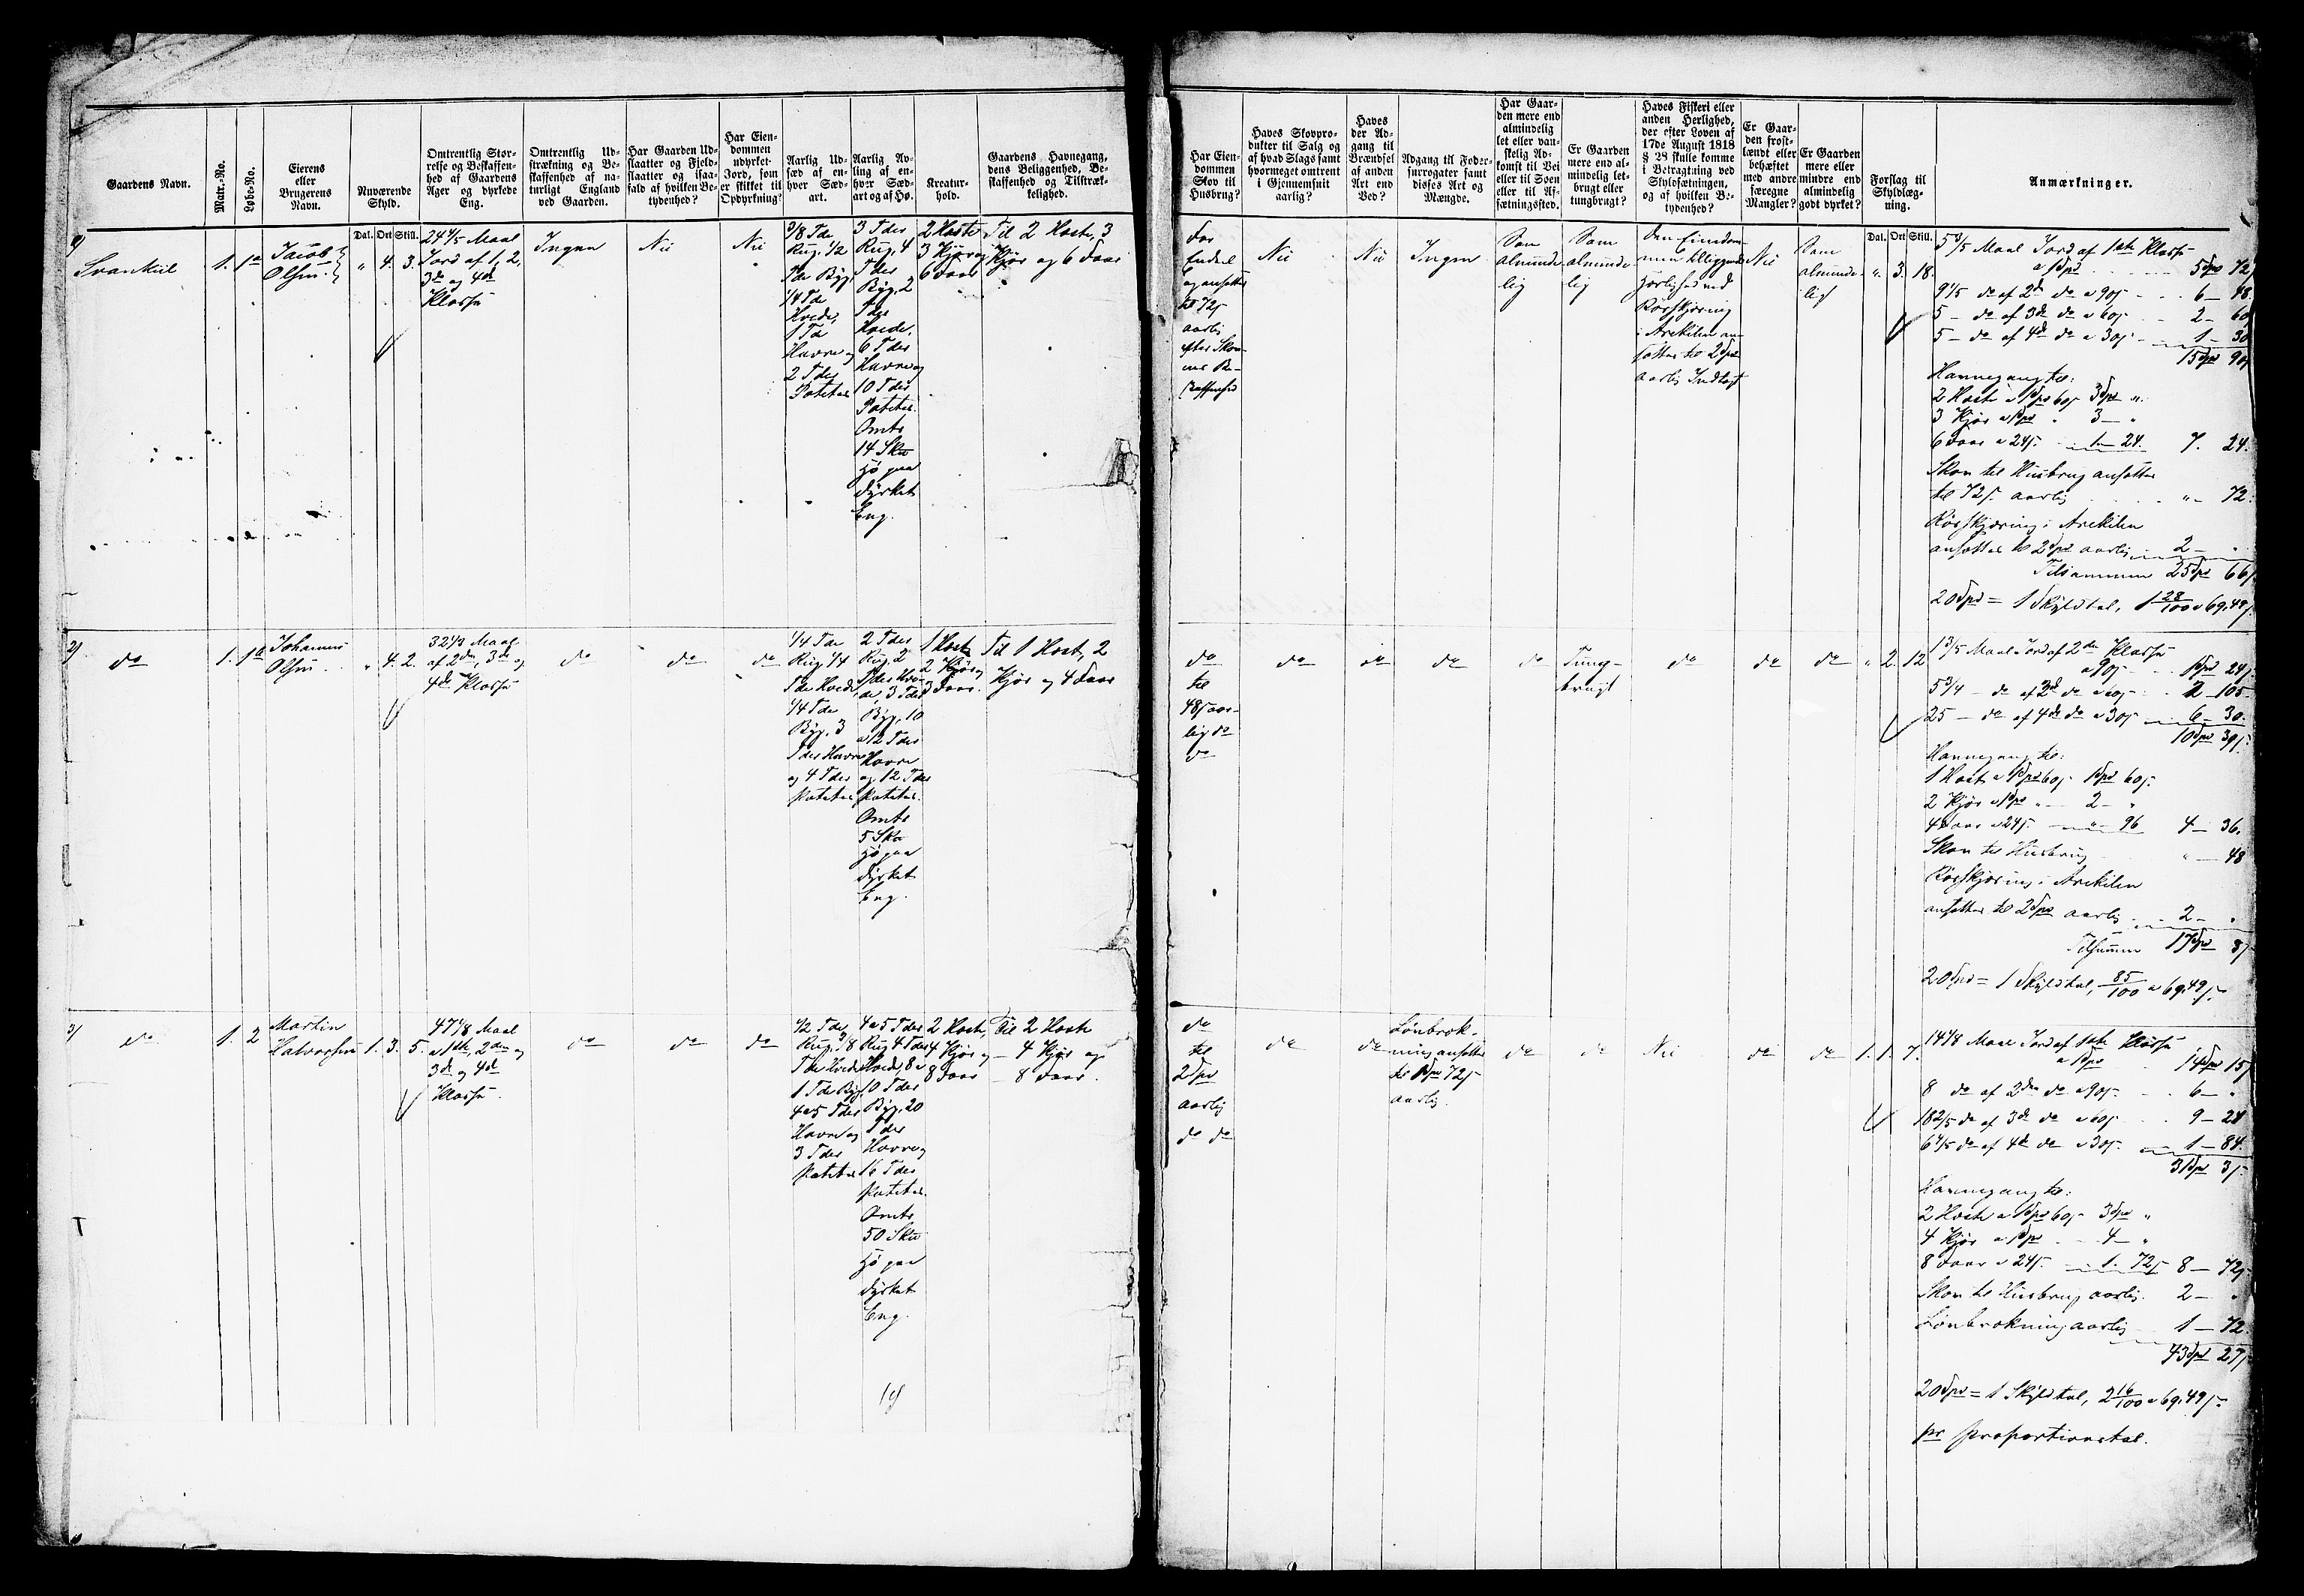 Gaardens Navn.
Matr.-No.
Løbe-No.
Eierens
eller
Brugerens
Navn.
Nuværende
Skyld.
Dal. Ort Skill.
Omtrentlig Stør-
relse og Beskaffen-
hed af Gaardens
Ager og dyrkede
Eng.
Omtrentlig Ud-
strækning og Be-
skaffenhed af na-
turligt England
ved Gaarden.
Har Gaarden Ud-
slaatter og Field-
slaatter og isaa-
fald af hvilken Be-
tydenhed?
Har Eien-
dommen
udyrket
Jord, som
er skikket til
Opdyrkning?
Aarlig Ud-
sæd af en-
hver Sæd-
art.
Aarlig Av-
ling af en-
hver Sæd-
art og af Hø.
Kreatur-
hold.
Gaardens Havnegang,
dens Beliggenhed, Be-
skaffenhed og Tilstræk-
kelighed.
Har Eien-
dommen
Skov til
Husbrug?
Haves Skovpro-
dukter til Salg og
af hvad Slags samt
hvormeget omtrent
i Gjennemsnit
aarlig?
Haves
der Ad-
gang til
Brændsel
af anden
Art end
Ved?
Adgang til Foder-
surrogater samt
disses Art og
Mængde.
Har Gaar-
den mere end
almindelig
let eller van-
skelig Ad-
komst til Vei
eller til Søen
eller til Af-
sætningssted.
Er Gaarden
mere end al-
mindelig let-
brugt eller
tungbrugt?
Haves Fiskeri eller
anden Herlighed,
der efter Loven af
17de August 1818
§ 28 skulle komme
i Betragtning ved
Skyldsætningen,
og af hvilken Be-
tydenhed?
Er Gaar-
den frost-
lændt eller
behæftet
med andre
særegne
Mangler?
Er Gaarden
mere eller
mindre end
almindelig
godt dyrket?
Forslag til
Skyldlæg-
ning.
Dal. Ort Skill.
Anmærkninger.
1)
Svankiil
1. 1a
Jacob
Olsen
" 4. 3.
24 4/5 Maal
Jord af 1, 2,
3de og 4de
Klasse
Ingen
Nei
Nei
3/8 Tde
Rug, 1/2
Tde Byg,
1/4 Tde
Hvede,
1 Tde
Havre og
2 Tder
Poteter
3 Tder
Rug, 4
Tder
Byg, 2
Tder
Hvede,
6 Tder
Havre og
10 Tder
Poteter.
Omtr
14 Skd
Hø paa
dyrket
Eng.
2 Heste
3 Kjør og
6 Faar
Til 2 Heste, 3
Kjør og 6 Faar
For
Endeel
og ansættes
til 72s
aarlig
efter Skov-
ens Be-
skaffenhed
Nei
Nei
Ingen
Som
alminde-
lig
Som
alminde-
lig
Den Eiendom-
men tilliggende
Herlighed ved
Rørskjæring
i Arekilen an-
sættes til 2 Spd
aarlig Indtægt
Nei
Som
alminde-
lig
" 3. 18.
5 3/5 Maal Jord af 1ste Klasse
a 1 Spd 5 Spd 72
9 1/5 do af 2den do a 90s 6 - 48.
5 - do af 3de do a 60s 2 - 60
5 - do af 4de do a 30s 1 - 30
15 Spd 90s
Havnegang til:
2 Heste a 1 Spd 60s 3 Spd ".
3 Kjør a 1 Spd " 3 - "
6 Faar a 24s 1 - 24. 7. 24.
Skov til Husbrug ansættes
til 72s aarlig " - 72.
Rørskjæring i Arekilen
ansættes til 2 Spd aarlig 2 - "
Tilsammen 25 Spd 66s.
20 Spd = 1 Skyldtal, 1 28/100 a 69,49s.
2)
do
1. 1b
Johannes
Olsen
" 4. 2.
32 1/3 Maal
af 2den, 3de og
4de Klasse
do
do
do
1/4 Tde
Rug, 1/4
Tde Hvede,
1/4 Tde
Byg, 3
Tder Havre
og 4 Tder
Poteter
2 Tder
Rug, 2
Tder Hve-
de, 3 Tder
Byg, 10
a 12 Tder
Havre
og 12 Tder
Poteter.
Omtr
5 Skd
Hø paa
dyrket
Eng.
1 Hest
2 Kjør og
3 Faar.
Til 1 Hest, 2
Kjør og 4 Faar
do
til
48s aar-
lig do
do
do
do
do
do
Tung-
brugt
do
do
do
" 2. 12
1 3/5 Maal Jord af 2den Klasse
a 90s 1 Spd 24s
5 3/4 - do af 3de do a 60s 2 - 105
25 - do af 4de do a 30s 6 - 30.
10 Spd 39s.
Havnegang til:
1 Hest a 1 Spd 60s 1 Spd 60s.
2 Kjør a 1 Spd " 2 - "
4 Faar a 24s. " - 96 4 - 36.
Skov til Husbrug " - 48
Rørskjæring i Arekilen
ansættes til 2 Spd aarlig 2 - "
Tilsammen 17 Spd 3s
20 Spd = 1 Skyldtal, 85/100 a 69,49s.
3)
do
1. 2
Martin
Halvorsen
1. 3. 5.
47 1/8 Maal
a 1ste, 2den og
3de og 4de
Klasse.
do
do
do
1/2 Tde
Rug, 3/8
Tde Hvede
1 Tde Byg,
4 a 5 Tder
Havre og
3 Tder
Poteter
4 a 5 Tder
Rug, 4 Tder
Hvede, 8 a
10 Tder
Byg, 20
Tder
Havre og
16 Tder
Poteter.
Omtr
50 Skd
Hø paa
dyrket
Eng.
2 Heste,
4 Kjør og
8 Faar
Til 2 Heste
- 4 Kjør og
- 8 Faar.
do
til
2 Spd
aarlig
do do
do
do
Løvbræk-
ning ansættes
til 1 Spd 72s
aarlig.
do
do
Nei
do
do
1. 1. 7.
14 1/8 Maal Jord af 1ste Klasse
a 1 Spd 14 Spd 15s
8 do af 2den do a 90s 6 - "
18 2/5 do af 3de do a 60s 9 - 24
6 1/5 do af 4de do a 30s. 1 - 84.
31 Spd 3s.
Havnegang til:
2 Heste a 1 Spd 60s 3 Spd "
4 Kjør a 1 Spd 4 - "
8 Faar a 24s. 1. 72s 8 - 72s
Skov til Husbrug aarlig. 2 - "
Løvbrækning aarlig 1 - 72.
43 Spd 27s
20 Spd = 1 Skyldtal, 2 16/100 a 69,49s.
pr proportionstal.